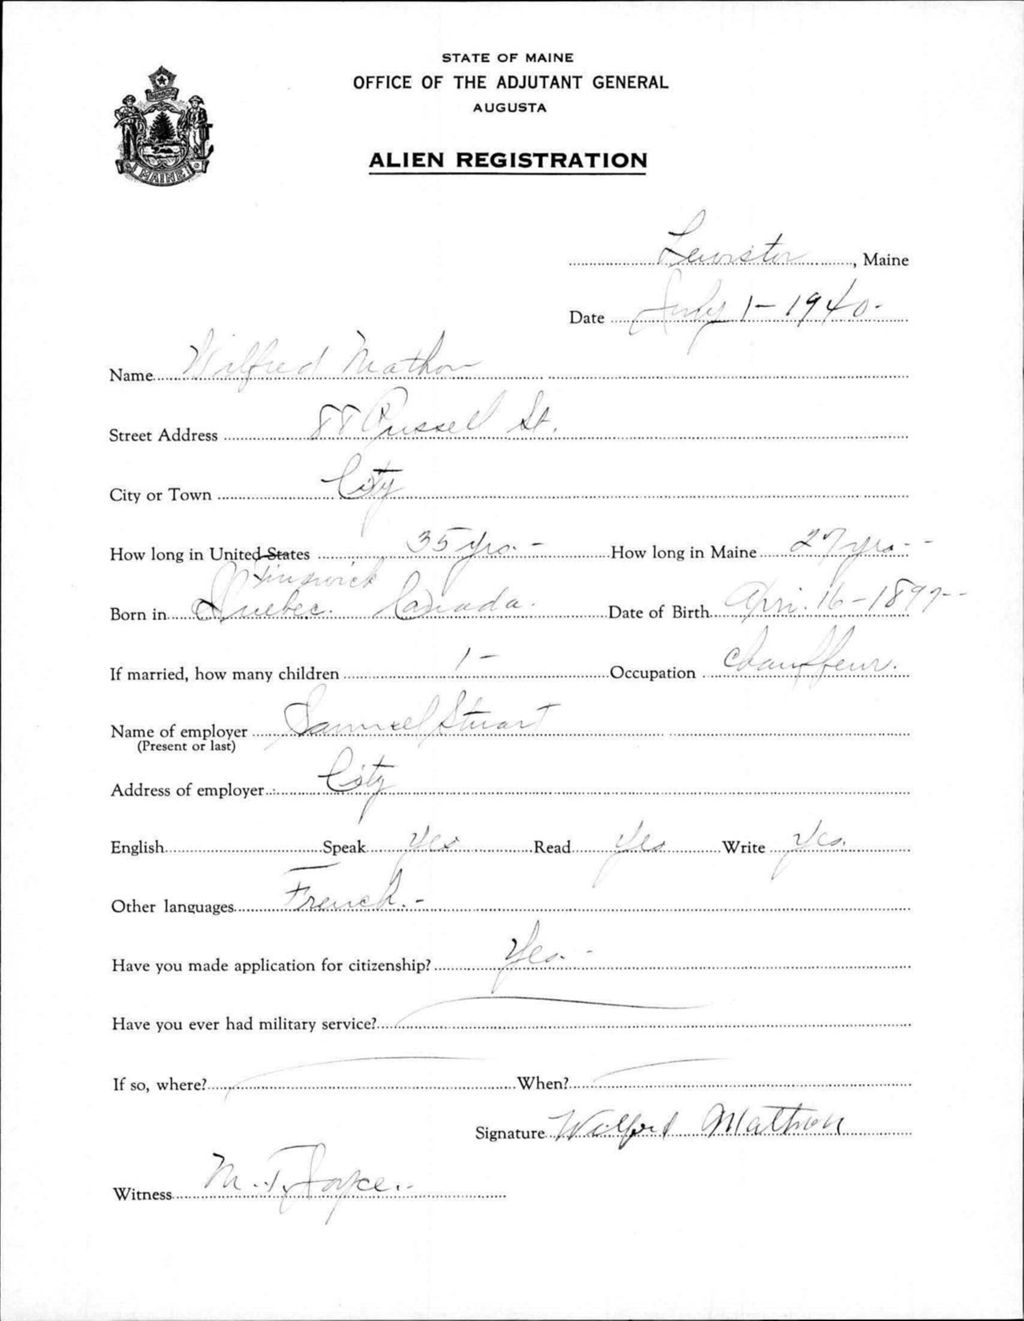 STATE OF MAINE
OFFICE OF THE ADJUTANT GENERAL
AUGUSTA
MAINE
ALIEN REGISTRATION
Lewiston, Maine
Date July 1-1940-
Name Wilfred Mathon
Street Address 88 Russell St.
City or Town City
How long in United States 35 yrs. - How long in Maine 27 yrs - -
Born in Quebec. Canada. Date of Birth Apri. 16-1897--
If married, how many children 1- Occupation Chauffeur.
Name of employer Samuel Stuart
(Present or last)
Address of employer City
English Speak Yes Read Yes Write Yes.
Other languages French. -
Have you made application for citizenship? Yes. -
Have you ever had military service?
If so, where? When?
Signature Wilfred Mathon
Witness M. T. Joyce.